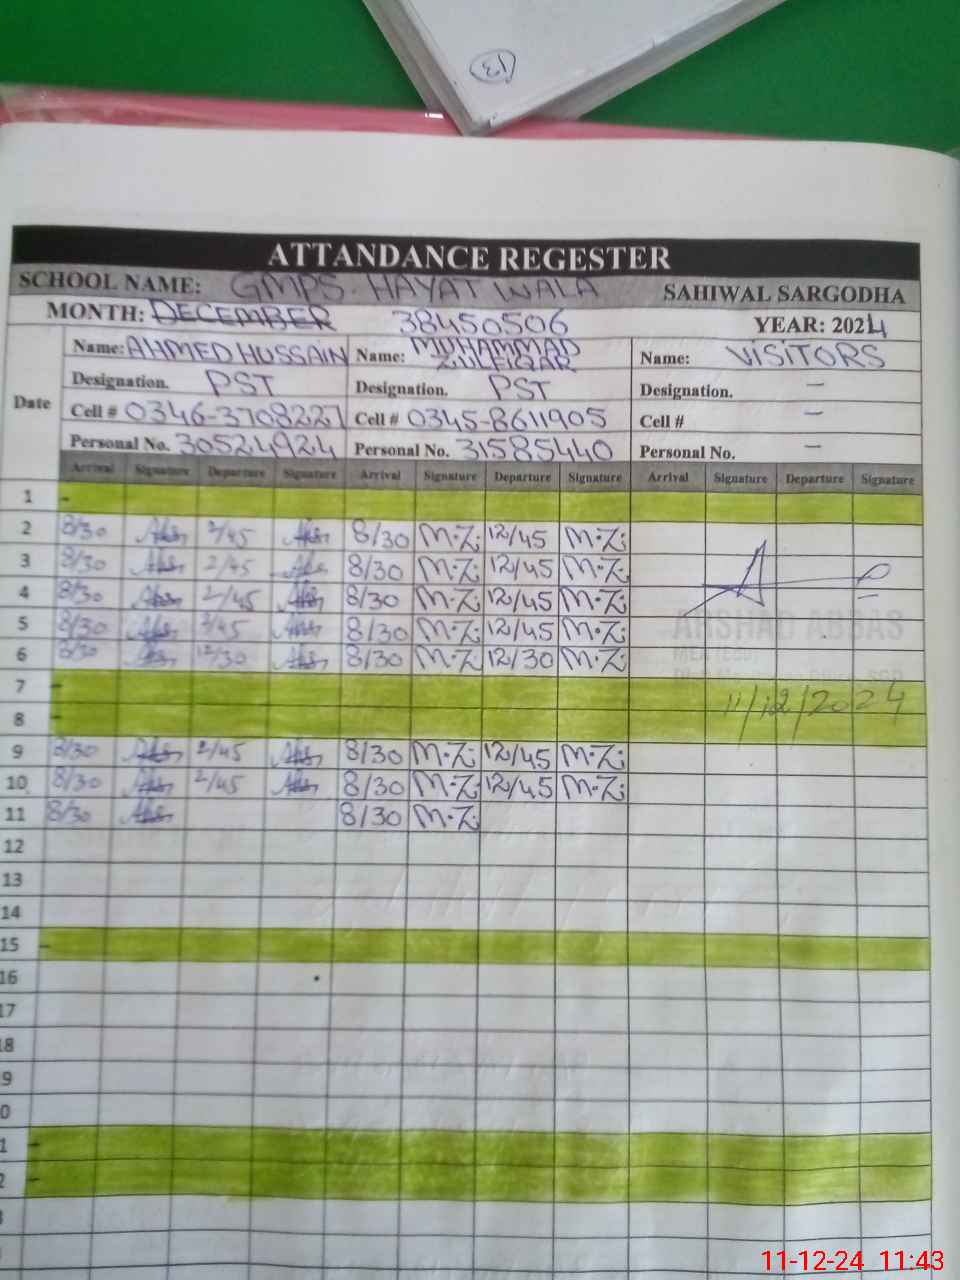 13
ATTANDANCE REGESTER
SCHOOL NAME: GMPS. HAYAT WALA SAHIWAL SARGODHA
MONTH: DECEMBER 38450506 YEAR: 2024
Name: AHMED HUSSAIN Name: MUHAMMAD ZULFIQAR Name: VISITORS
Designation. PST Designation. PST Designation. —
Date Cell # 0346-3708221 Cell # 0345-8611905 Cell # —
Personal No. 30524924 Personal No. 31585440 Personal No. —
Arrival Signature Departure Signature Arrival Signature Departure Signature Arrival Signature Departure Signature
1 -
2 8/30 2/45 8/30 M.Z. 12/45 M.Z.
3 8/30 2/45 8/30 M.Z. 12/45 M.Z.
4 8/30 2/45 8/30 M.Z. 12/45 M.Z.
5 8/30 2/45 8/30 M.Z. 12/45 M.Z.
ARSHAD ABBAS
6 8/30 12/30 8/30 M.Z. 12/30 M.Z.
MEA
7 -
11/12/2024
8 -
9 8/30 2/45 8/30 M.Z. 12/45 M.Z.
10 8/30 2/45 8/30 M.Z. 12/45 M.Z.
11 8/30 8/30 M.Z.
12
13
14
15 -
16
17
18
9
0
1 -
2 -
3
11-12-24 11:43